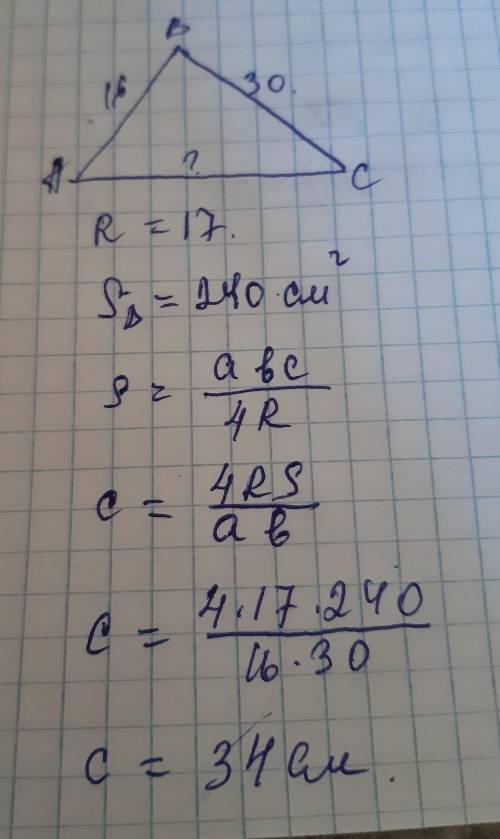 B
16 30.
A ? C
R = 17.
S_Δ = 240 см²
S = \frac{abc}{4R}
c = \frac{4RS}{ab}
c = \frac{4·17·240}{16·30}
c = 34 см.